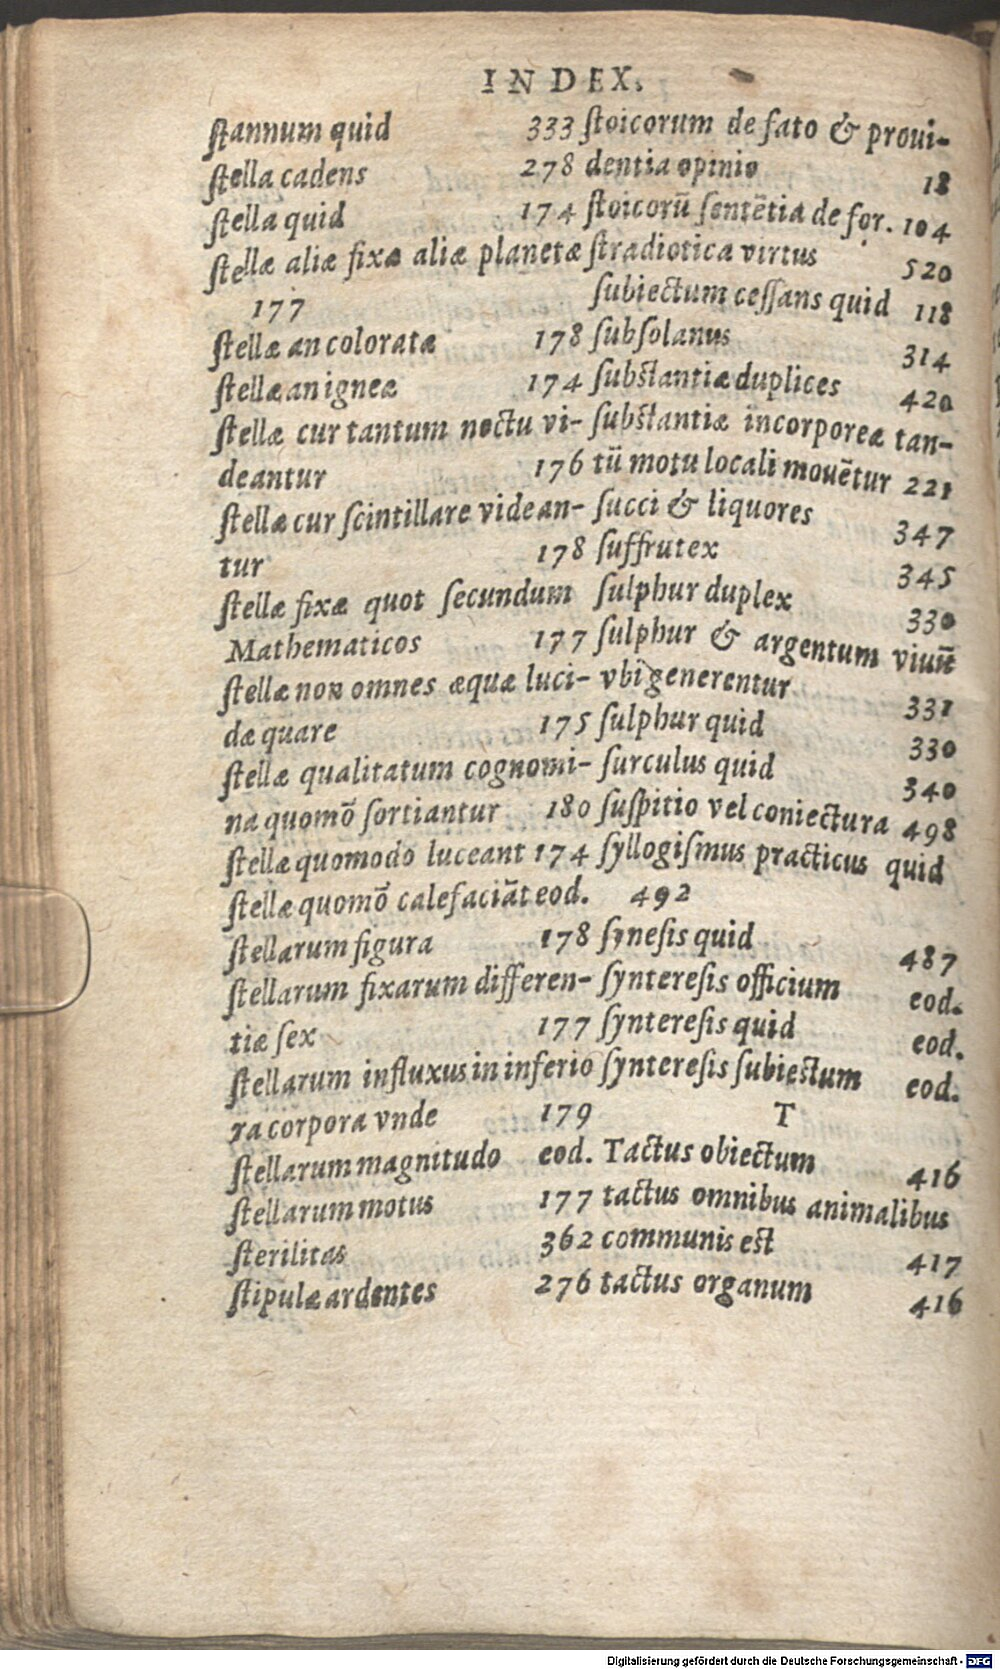 INDEX.
ſtannum quid 333
ſtella cadens 278
ſtella quid 174
ſtellæ aliæ fixæ aliæ planetæ
177
ſtellæ an coloratæ 178
ſtellæ an igneæ 174
ſtellæ cur tantum noctu vi-
deantur 176
ſtellæ cur ſcintillare videan-
tur 178
ſtellæ fixæ quot ſecundum
Mathematicos 177
ſtellæ non omnes æquæ luci-
dæ quare 175
ſtellæ qualitatum cognomi-
na quomō ſortiantur 180
ſtellæ quomodo luceant 174
ſtellæ quomō calefaciāt eod.
ſtellarum figura 178
ſtellarum fixarum differen-
tiæ ſex 177
ſtellarum influxus in inferio
ra corpora vnde 179
ſtellarum magnitudo eod.
ſtellarum motus 177
ſterilitas 362
ſtipulæ ardentes 276
ſtoicorum de fato & proui-
dentia opinio 18
ſtoicorū ſentētia de for. 104
ſtradiotica virtus 520
ſubiectum ceſſans quid 118
ſubſolanus 314
ſubſtantiæ duplices 420
ſubſtantiæ incorporeæ tan-
tū motu locali mouētur 221
ſucci & liquores 347
ſuffrutex 345
ſulphur duplex 330
ſulphur & argentum viuū
vbi generentur 331
ſulphur quid 330
ſurculus quid 340
ſuſpitio vel coniectura 498
ſyllogiſmus practicus quid
492
ſyneſis quid 487
ſyntereſis officium eod.
ſyntereſis quid eod.
ſyntereſis ſubiectum eod.
T
Tactus obiectum 416
tactus omnibus animalibus
communis eſt 417
tactus organum 416
Digitalisierung gefördert durch die Deutsche Forschungsgemeinschaft - DFG